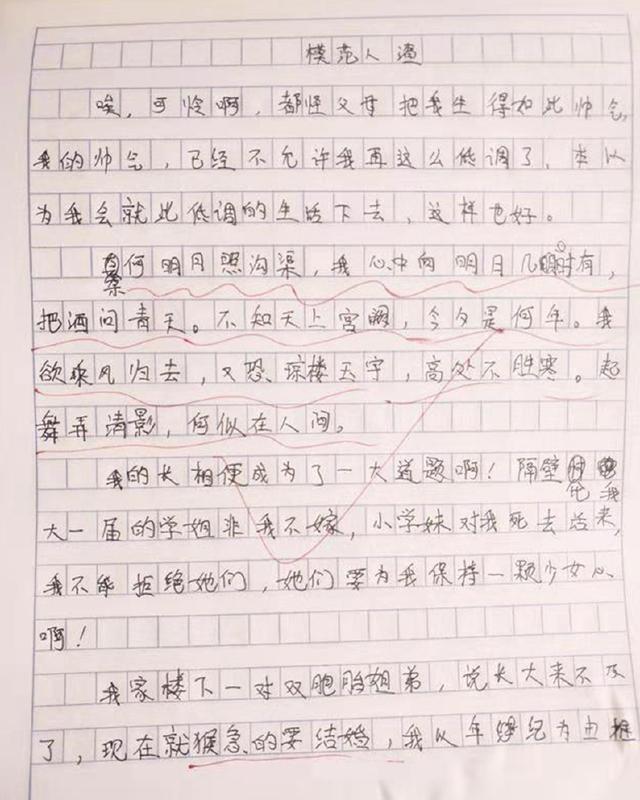 模范人渣
唉，可怜啊，都怪父母把我生得如此帅气，
我的帅气，已经不允许我再这么低调了，本以
为我会就此低调的生活下去，这样也好。
奈何明月照沟渠，我心中向明日几时有，
把酒问青天。不知天上宫阙，今夕是何年。我
欲乘风归去，又恐琼楼玉宇，高处不胜寒。起
舞弄清影，何似在人间。
我的长相便成为了一大道题啊！隔壁比我
大一届的学姐非我不嫁，小学妹对我死去活来，
我不能拒绝她们，她们要为我保持一颗少女心
啊！
我家楼下一对双胞胎姐弟，说长大来不及
了，现在就猴急的要结婚，我以年纪为由推